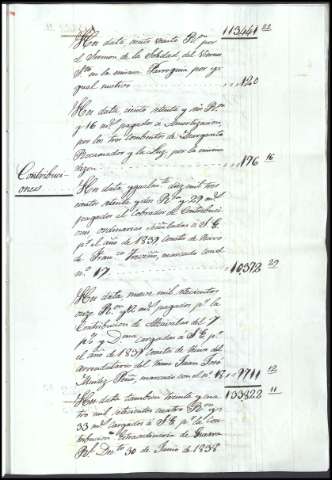 113441 22
Son data ciento veinte R.s por
el Sermon de la Soledad del Viernes
S.to en la misma Parroquia por y-
gual motivo 120
Son data, ciento setenta y seis R.s
y 16 m.s pagados a Amortizacion,
por los tres combentos de
y la Luz, por la misma
razon 176 16
Contribuci-
ones
Son data diez mil tres
cientos setenta y dos R.s y 29 m.s
pagados al cobrador de Contribucio-
nes ordinarias señaladas a S.E.
p.r el año de 1837 consta de Recivo
de Fran.co marcado con el
n.o 17 10,372 29
Son data, nueve mil, setecientos
once R.s y 12 m.s pagados p.r la
Contribucion de Alcavalas del
cargados a S.E. p.r
el año de 1837 consta de Recivo del
arrendatario del ramo Juan José
Muñoz Peña, marcado con el n.o 18 9711 12
133822 11
Son data tambien treinta y cua-
tro mil, setecientos cuatro R.s y
33 m.s cargados a S.E. p.r la con-
tribucion extraordinaria de Guerra
R.l Dec.to 30 de Junio de 1838